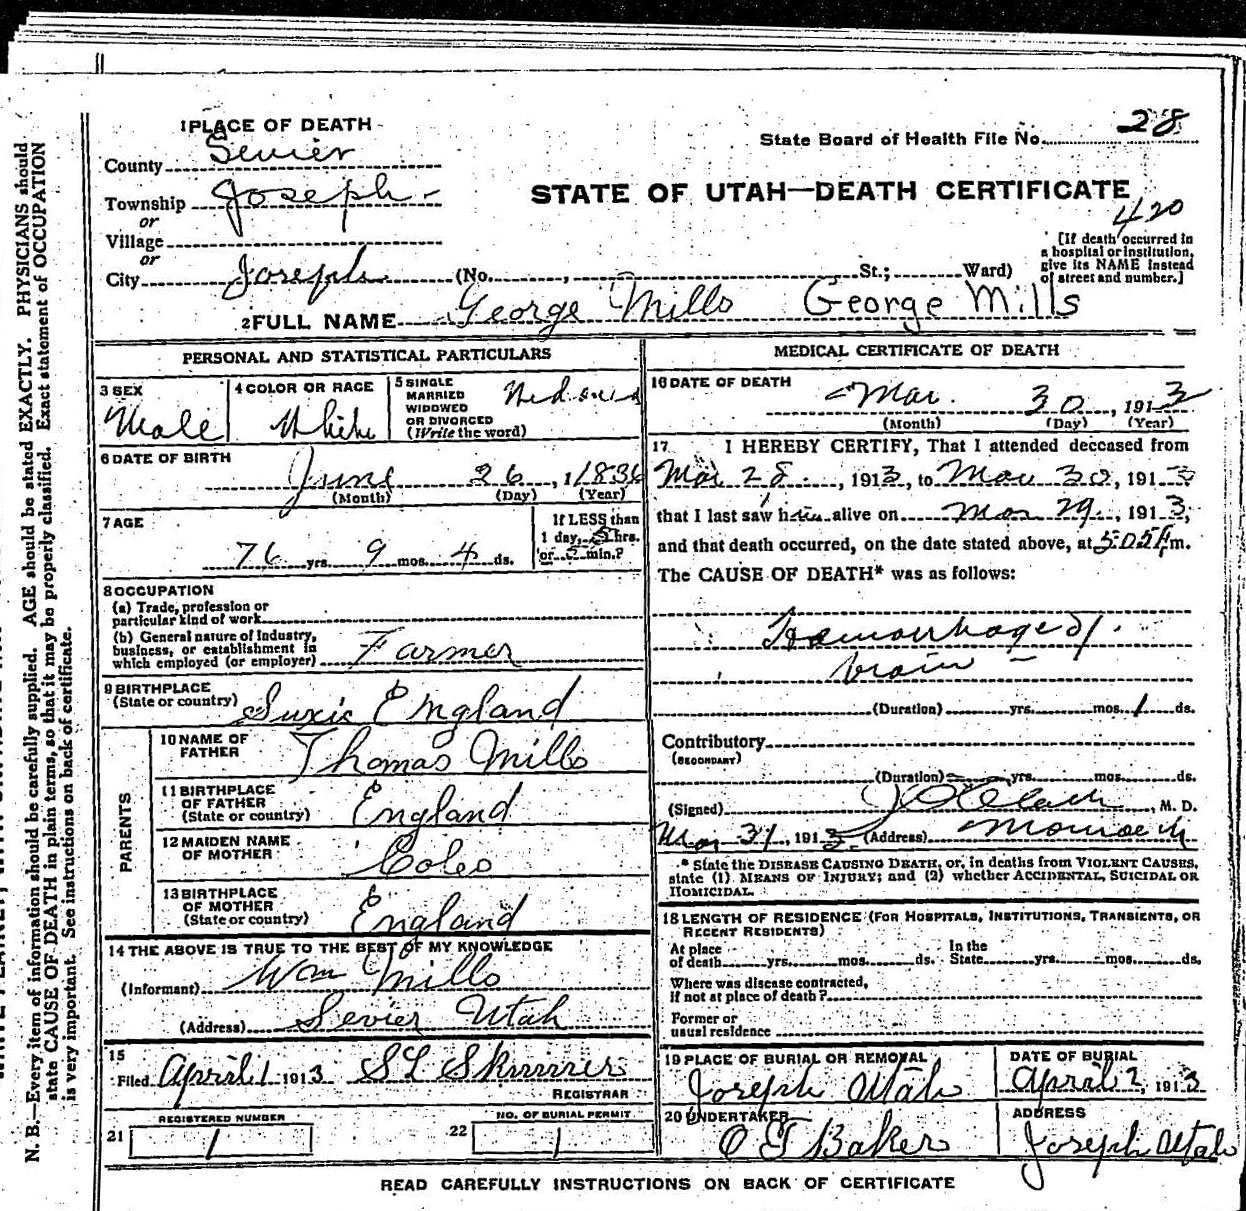 1 PLACE OF DEATH
State Board of Health File No. 28
County Sevier
Township Joseph
or
Village
or
City Joseph (No. , St.; Ward)
STATE OF UTAH—DEATH CERTIFICATE
420
[If death occurred in a hospital or institution, give its NAME instead of street and number.]
2 FULL NAME George Mills George Mills
PERSONAL AND STATISTICAL PARTICULARS
3 SEX
Male
4 COLOR OR RACE
White
5 SINGLE
MARRIED
WIDOWED
OR DIVORCED
(Write the word)
6 DATE OF BIRTH
June 26, 1836
(Month) (Day) (Year)
7 AGE
76 yrs. 9 mos. 4 ds.
If LESS than
1 day, hrs.
or min.?
8 OCCUPATION
(a) Trade, profession or
particular kind of work
(b) General nature of Industry,
business, or establishment in
which employed (or employer) Farmer
9 BIRTHPLACE
(State or country) England
PARENTS
10 NAME OF
FATHER Thomas Mills
11 BIRTHPLACE
OF FATHER
(State or country) England
12 MAIDEN NAME
OF MOTHER Coles
13 BIRTHPLACE
OF MOTHER
(State or country) England
14 THE ABOVE IS TRUE TO THE BEST OF MY KNOWLEDGE
(Informant) Wm Mills
(Address) Sevier Utah
15
Filed April 1 1913 S L Skinner
REGISTRAR
REGISTERED NUMBER
21 1
NO. OF BURIAL PERMIT
22 1
MEDICAL CERTIFICATE OF DEATH
16 DATE OF DEATH
Mar. 30, 1913
(Month) (Day) (Year)
17 I HEREBY CERTIFY, That I attended deceased from
Mar 28, 1913, to Mar 30, 1913
that I last saw him alive on Mar 29, 1913,
and that death occurred, on the date stated above, at 5:05 m.
The CAUSE OF DEATH* was as follows:
Hemorrhage of
brain
(Duration) yrs. mos. 1 ds.
Contributory
(SECONDARY)
(Duration) yrs. mos. ds.
(Signed) , M. D.
Mar 31, 1913 (Address) Monroe
* State the DISEASE CAUSING DEATH, or, in deaths from VIOLENT CAUSES,
state (1) MEANS OF INJURY; and (2) whether ACCIDENTAL, SUICIDAL OR
HOMICIDAL.
18 LENGTH OF RESIDENCE (FOR HOSPITALS, INSTITUTIONS, TRANSIENTS, OR
RECENT RESIDENTS)
At place
of death yrs. mos. ds.
In the
State yrs. mos. ds.
Where was disease contracted,
If not at place of death?
Former or
usual residence
19 PLACE OF BURIAL OR REMOVAL
Joseph Utah
DATE OF BURIAL
April 2, 1913
20 UNDERTAKER
Baker
ADDRESS
Joseph Utah
READ CAREFULLY INSTRUCTIONS ON BACK OF CERTIFICATE
N. B.—Every item of information should be carefully supplied. AGE should be stated EXACTLY. PHYSICIANS should
state CAUSE OF DEATH in plain terms, so that it may be properly classified. Exact statement of OCCUPATION
is very important. See instructions on back of certificate.